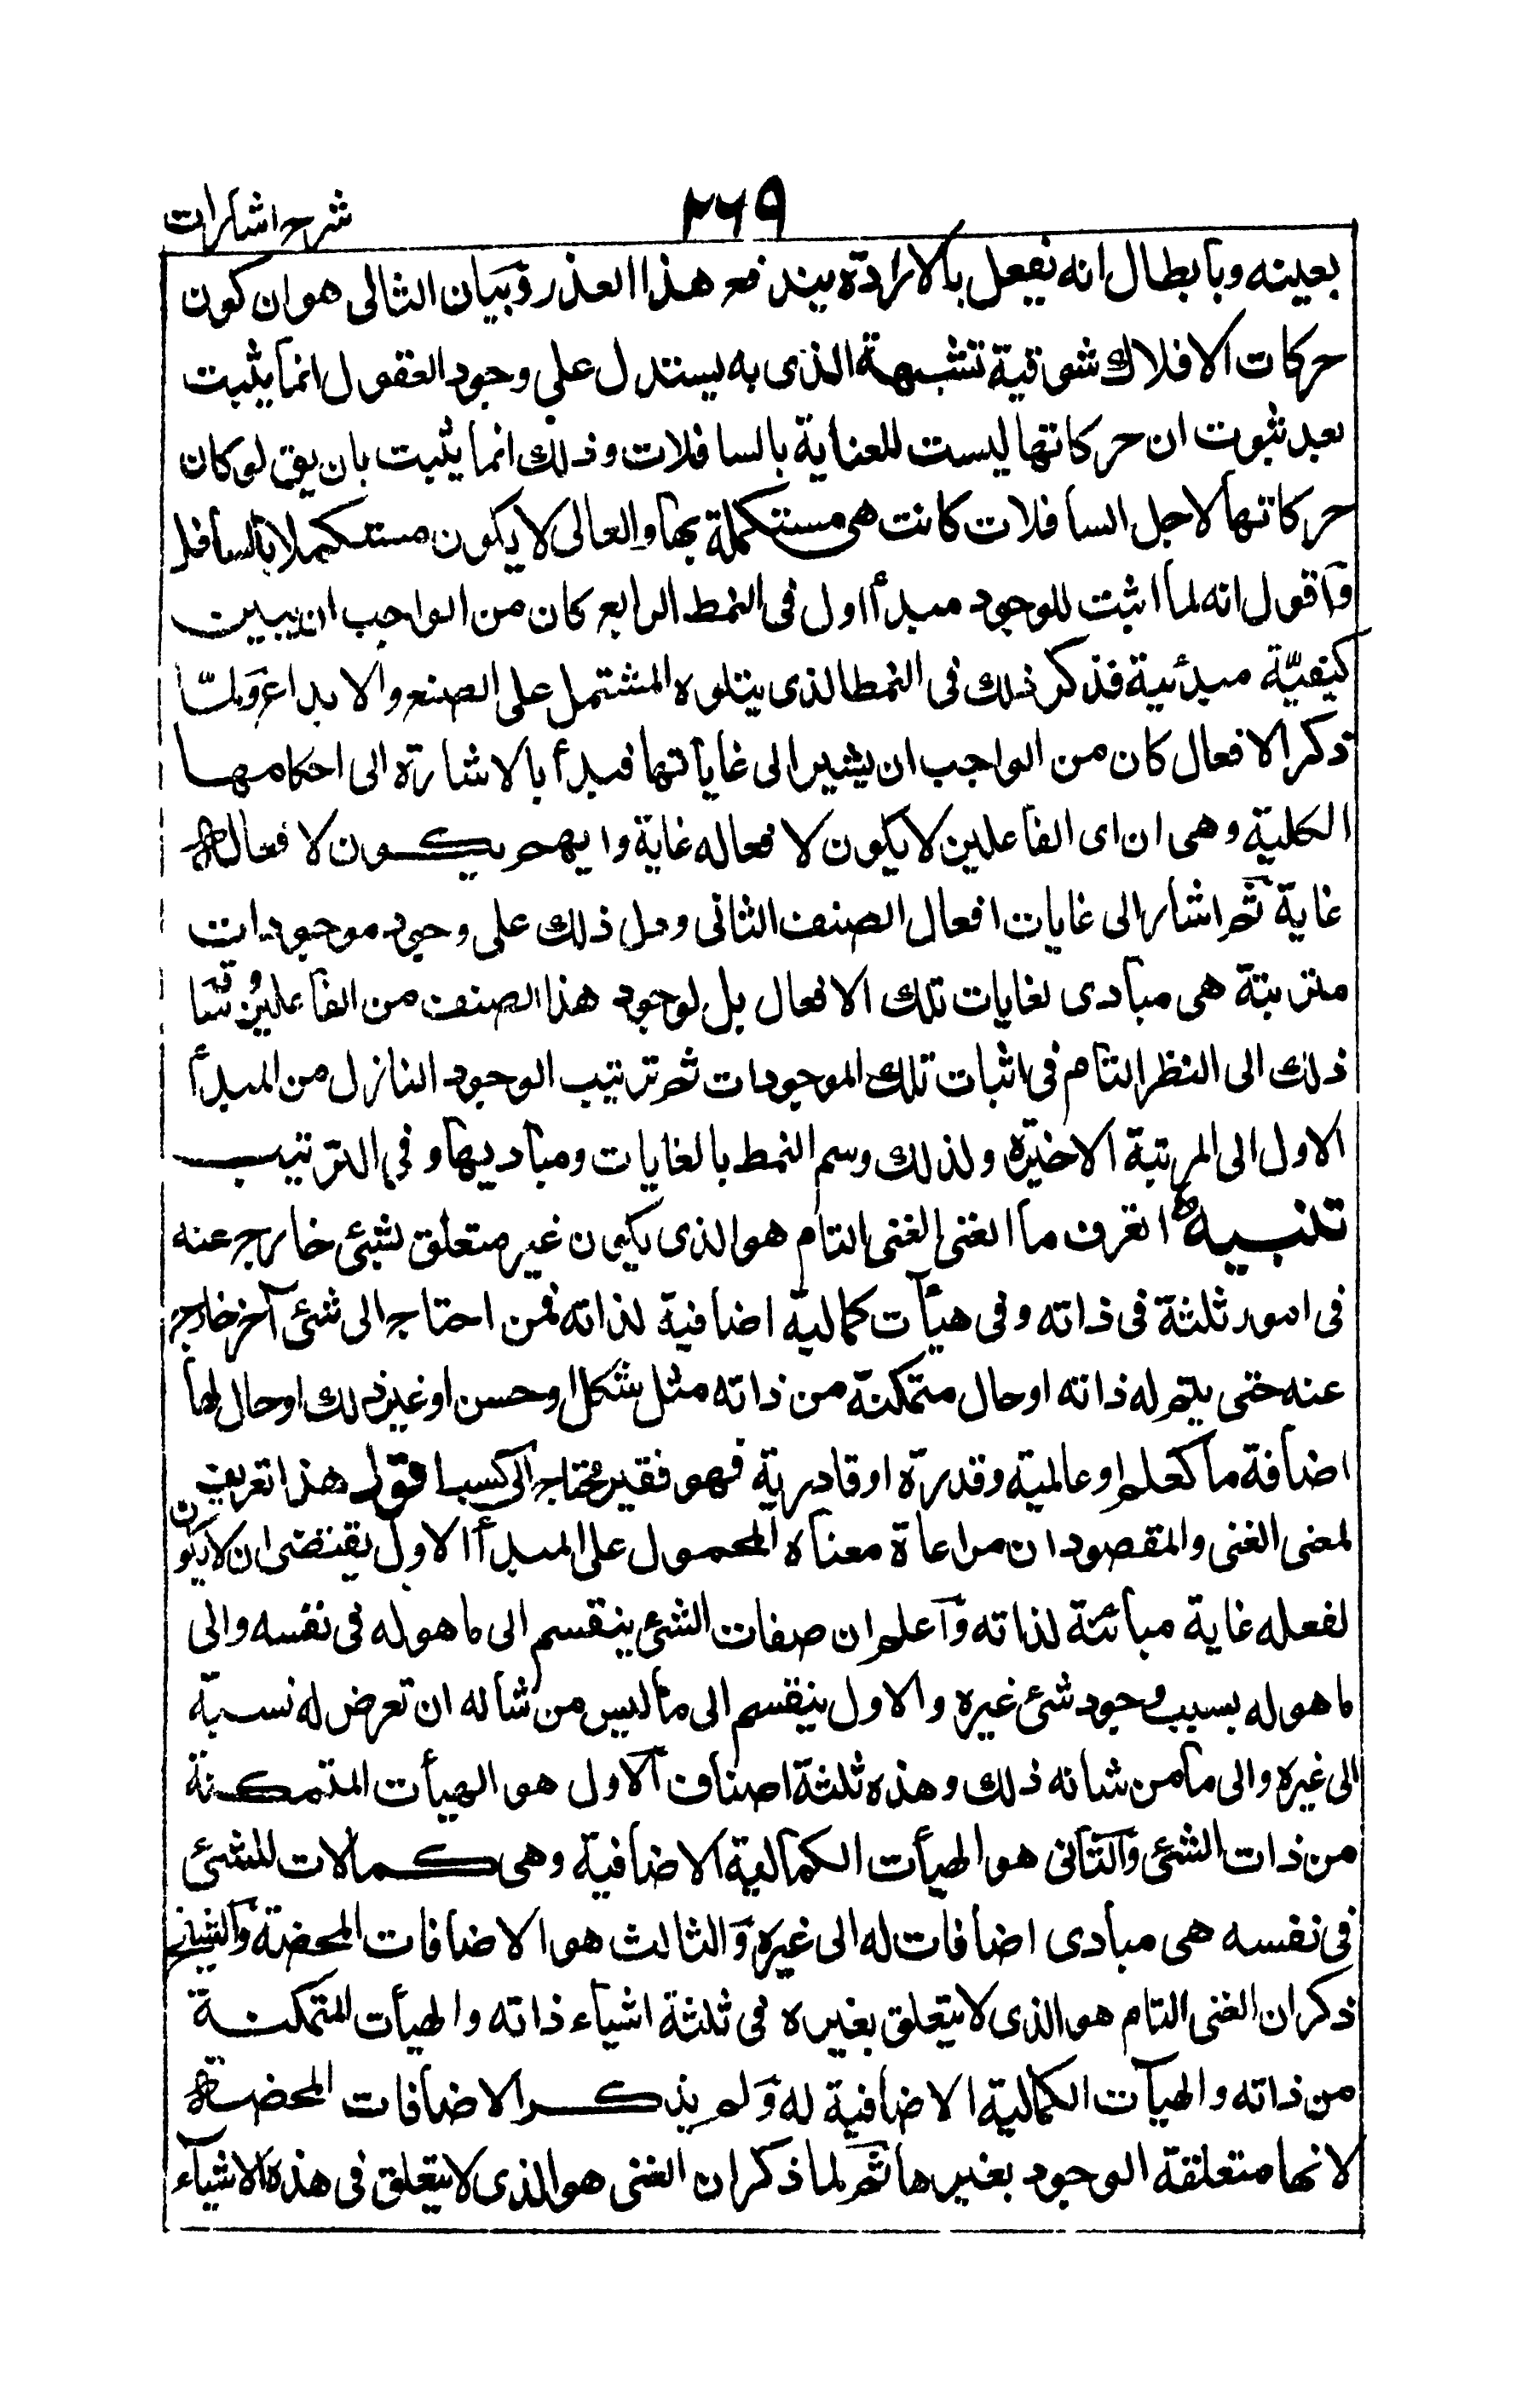 شرح اشارات
٢٦٩
بعينه وبابطال انه يفعل بالارادة يندفع هذا العذر وبيان الثالى هو ان كون
حركات الافلاك شوقية تشبهية الذى به يستدل على وجود العقول انما يثبت
بعد ثبوت ان حركاتها ليست للعناية بالسافلات وذلك انما يثبت بان يق لو كان
حركاتها لاجل السافلات كانت هى مستكملة بها والعالى لا يكون مستكملا بالسافل
واقول انه لما اثبت للوجود مبدأ اول فى النمط الرابع كان من الواجب ان يبين
كيفيّة مبدئية فذكر ذلك فى النمط الذى يتلوه المشتمل على الصنع والابداع ولمّا
ذكر الافعال كان من الواجب ان يشير الى غاياتها فبدأ بالاشارة الى احكامها
الكلية وهى ان اى الفاعلين لا يكون لافعاله غاية وايهم يكون لافعاله
غاية ثم اشار الى غايات افعال الصنف الثانى ودل ذلك على وجود موجودات
مترتبة هى مبادى لغايات تلك الافعال بل لوجود هذا الصنف من الفاعلين فساقه
ذلك الى النظر التام فى اثبات تلك الموجودات ثم ترتيب الوجود النازل من المبدأ
الاول الى المرتبة الاخيرة ولذلك وسم النمط بالغايات ومباديها وفى الترتيب
تنبيه اتعرف ما الغنى الغنى التام هو الذى يكون غير متعلق بشئ خارج عنه
فى امور ثلثة فى ذاته وفى هيأت كمالية اضافية لذاته فمن احتاج الى شئ آخر خارج
عنه حتى يتم له ذاته او حال متمكنة من ذاته مثل شكل او حسن او غير ذلك او حال لها
اضافة ما كعلم او عالمية وقدرة او قادرية فهو فقير محتاج الى كسب اقول هذا تعريف
لمعنى الغنى والمقصود ان مراعاة معناه المحمول على المبدأ الاول يقتضى ان لا يكون
لفعله غاية مباينة لذاته واعلم ان صفات الشئ ينقسم الى ما هو له فى نفسه والى
ما هو له بسبب وجود شئ غيره والاول ينقسم الى ما ليس من شانه ان تعرض له نسبة
الى غيره والى ما من شانه ذلك وهذه ثلثة اصناف الاول هو الهيأت المتمكنة
من ذات الشئ والثانى هو الهيأت الكمالية الاضافية وهى كمالات للشئ
فى نفسه هى مبادى اضافات له الى غيره والثالث هو الاضافات المحضة والشيخ
ذكر ان الغنى التام هو الذى لا يتعلق بغيره فى ثلثة اشياء ذاته والهيأت المتمكنة
من ذاته والهيأت الكمالية الاضافية له ولم يذكر الاضافات المحضة
لانها متعلقة الوجود بغيرها ثم لما ذكر ان الغنى هو الذى لا يتعلق فى هذه الاشياء